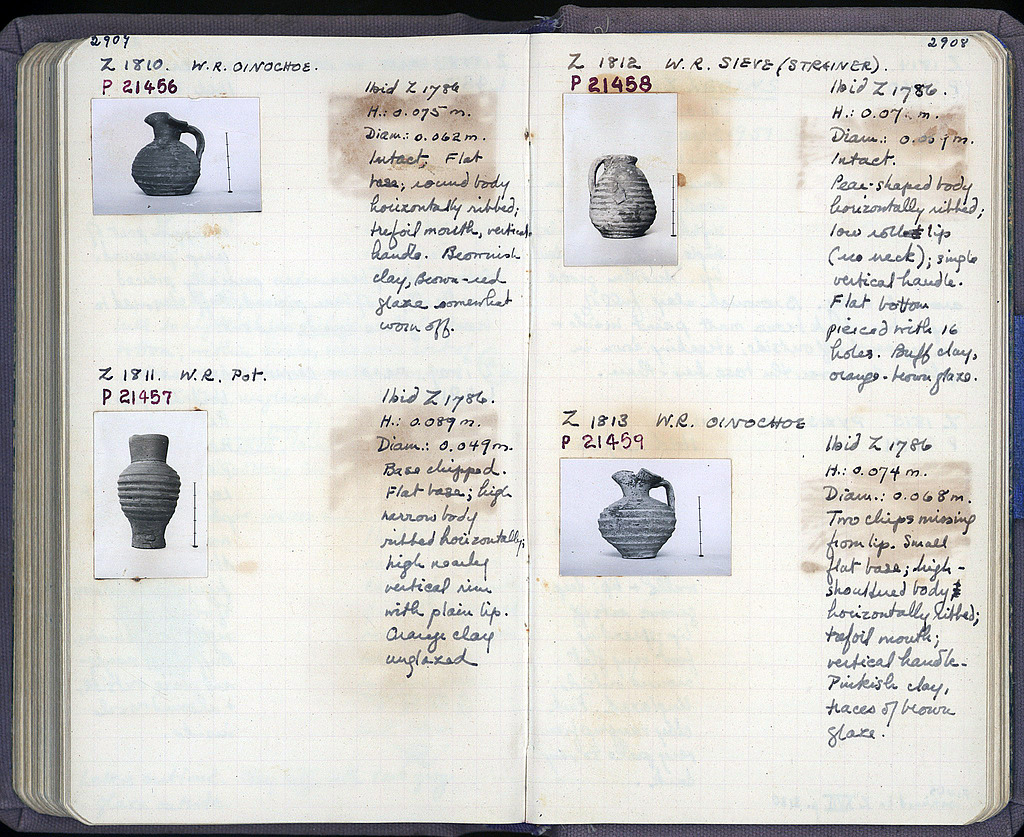 2907
Z 1810. W.R. OINOCHOE.
P 21456
Ibid Z 1786
H.: 0.075 m.
Diam.: 0.062 m.
Intact. Flat
base; round body
horizontally ribbed;
trefoil mouth, vertical
handle. Brownish
clay, brown-red
glaze somewhat
worn off.
Z 1811. W.R. Pot.
P 21457
Ibid Z 1786.
H.: 0.089 m.
Diam.: 0.049 m.
Base chipped.
Flat base; high
narrow body
ribbed horizontally;
high nearly
vertical rim
with plain lip.
Orange clay
unglazed
2908
Z 1812 W.R. SIEVE (STRAINER).
P 21458
Ibid Z 1786.
H.: m.
Diam.: m.
Intact.
Pear-shaped body
horizontally ribbed;
low rolled lip
(no neck); single
vertical handle.
Flat bottom
pierced with 16
holes. Buff clay,
orange-brown glaze.
Z 1813 W.R. OINOCHOE
P 21459
Ibid Z 1786
H.: 0.074 m.
Diam.: 0.068 m.
Two chips missing
from lip. Small
flat base; high-
shouldered body
horizontally ribbed;
trefoil mouth;
vertical handle.
Pinkish clay,
traces of brown
glaze.